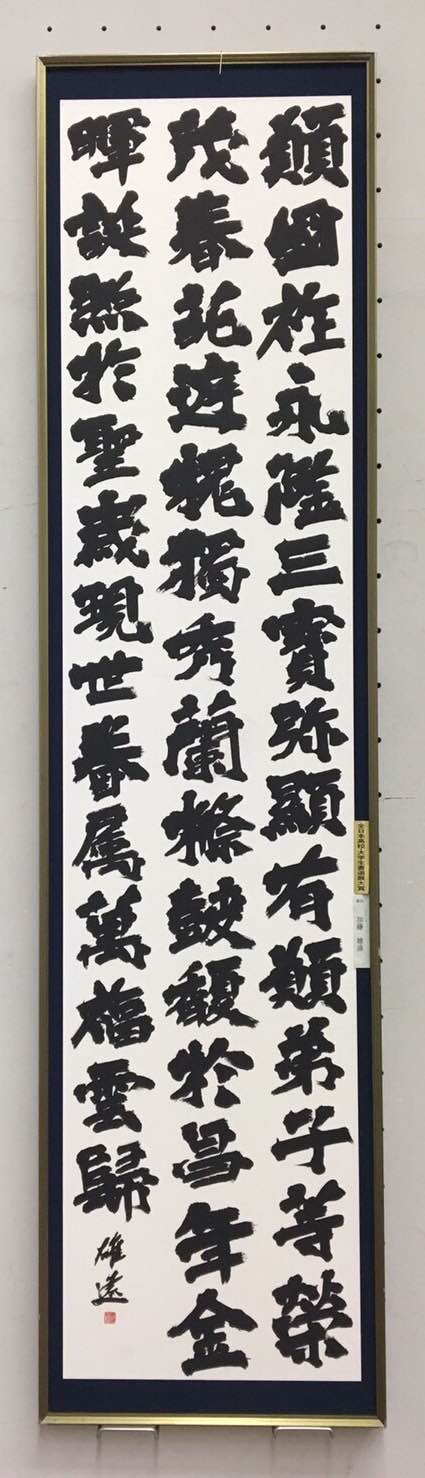 願國祚永隆三寶弥顯有願弟子等榮
茂春葩庭槐獨秀蘭條鼓馥於昌年金
暉誕照於聖歲現世眷属萬福雲歸
雄遠
全日本高校・大学生書道展大賞
加藤 雄遠